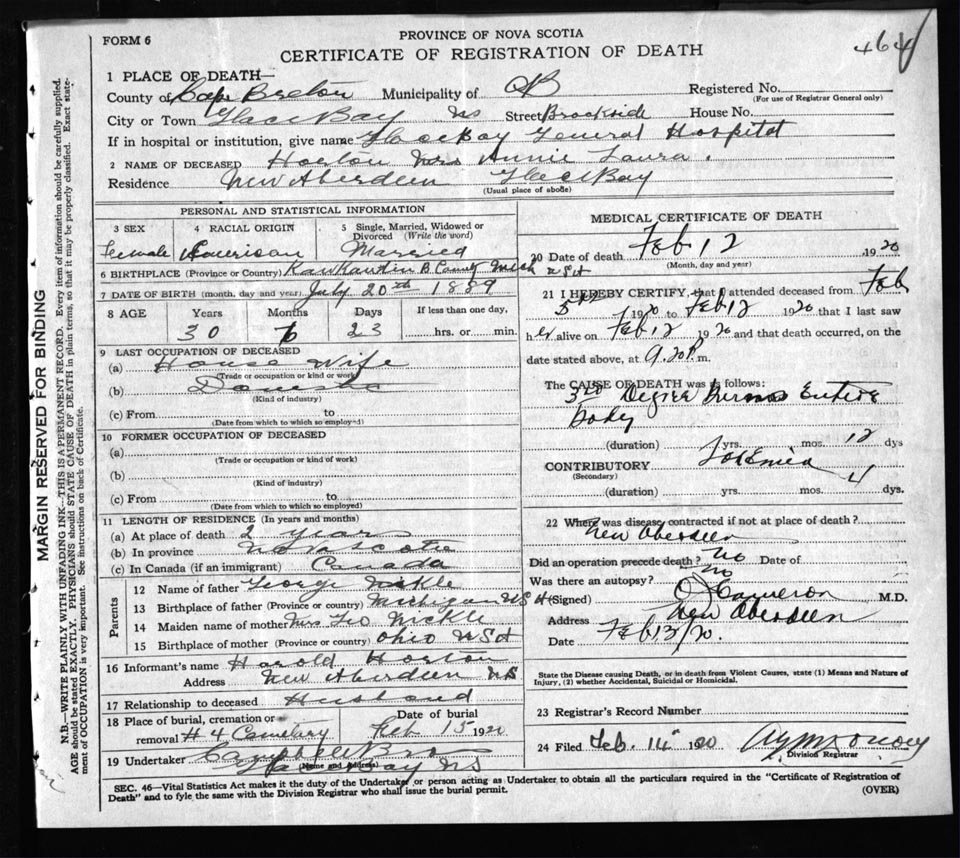 FORM 6
PROVINCE OF NOVA SCOTIA
CERTIFICATE OF REGISTRATION OF DEATH
464
MARGIN RESERVED FOR BINDING
N.B.—WRITE PLAINLY WITH UNFADING INK—THIS IS A PERMANENT RECORD. Every item of information should be carefully supplied.
AGE should be stated EXACTLY. PHYSICIANS should STATE CAUSE OF DEATH in plain terms, so that it may be properly classified. Exact state-
ment of OCCUPATION is very important. See instructions on back of Certificate.
1 PLACE OF DEATH—
County of Cape Breton Municipality of CB Registered No.
(For use of Registrar General only)
City or Town Glace Bay NS Street Brookside House No.
If in hospital or institution, give name Glace Bay General Hospital
2 NAME OF DECEASED Horton Mrs Annie Laura.
Residence New Aberdeen Glace Bay
(Usual place of abode)
PERSONAL AND STATISTICAL INFORMATION
3 SEX 4 RACIAL ORIGIN 5 Single, Married, Widowed or
Divorced (Write the word)
Female American Married
6 BIRTHPLACE (Province or Country) B. County Mich USA
7 DATE OF BIRTH (month, day and year) July 20th 1889
8 AGE Years Months Days If less than one day,
30 6 23 hrs. or min.
9 LAST OCCUPATION OF DECEASED
(a) House Wife
(Trade or occupation or kind of work)
(b) Domestic
(Kind of industry)
(c) From to
(Date from which to which so employed)
10 FORMER OCCUPATION OF DECEASED
(a)
(Trade or occupation or kind of work)
(b)
(Kind of industry)
(c) From to
(Date from which to which so employed)
11 LENGTH OF RESIDENCE (In years and months)
(a) At place of death 2 years
(b) In province Nova Scotia
(c) In Canada (if an immigrant) Canada
Parents
12 Name of father George Nickle
13 Birthplace of father (Province or country) Michigan USA
14 Maiden name of mother Mrs Geo Nickle
15 Birthplace of mother (Province or country) Ohio USA
16 Informant's name Harold Horton
Address New Aberdeen NS
17 Relationship to deceased Husband
18 Place of burial, cremation or Date of burial
removal # 4 Cemetary Feb 15 1920
19 Undertaker Bros
(Name and Address)
Glace Bay NS
MEDICAL CERTIFICATE OF DEATH
20 Date of death Feb 12 1920
(Month, day and year)
21 I HEREBY CERTIFY, that I attended deceased from Feb
1920 to Feb 12 1920 that I last saw
her alive on Feb 12 1920 and that death occurred, on the
date stated above, at 9.20 P.m.
The CAUSE OF DEATH was as follows:
3rd Degree Burns Entire
body
(duration) yrs. mos. 12 dys
CONTRIBUTORY Toxemia
(Secondary)
(duration) yrs. mos. 4 dys.
22 Where was disease contracted if not at place of death?
New Aberdeen
Did an operation precede death? No Date of
Was there an autopsy? no
(Signed) Cameron M.D.
Address New Aberdeen
Date Feb 13/20.
State the Disease causing Death, or in death from Violent Causes, state (1) Means and Nature of
Injury, (2) whether Accidental, Suicidal or Homicidal.
23 Registrar's Record Number
24 Filed Feb. 14 1920
Division Registrar
SEC. 46—Vital Statistics Act makes it the duty of the Undertaker or person acting as Undertaker to obtain all the particulars required in the "Certificate of Registration of
Death" and to fyle the same with the Division Registrar who shall issue the burial permit. (OVER)